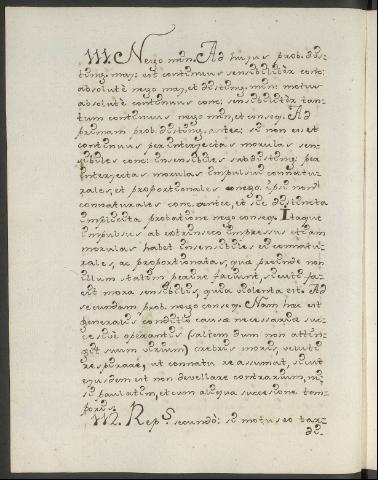 111. Nego min. Ad hujus prob. dis-
ting. maj: est continuus sensibiliter conc:
absolutè nego maj, et disting. min: motus
absolutè continuus conc: sensibiliter tan-
tum continuus nego min, et conseq. Ad
primam prob. disting. antec: si non est
continuus per interjectas morulas sen-
sibiles conc: insensibiles subdisting: per
interjectas morulas impulsui connatu-
rales, et proportionales nego ipsi non
connaturales conc. antec, et sic distincta
implicita probatione nego conseq. Itaque
impulsus ab extrinseco impressus etiam
morulas habet insensibiles ei connatu-
rales, ac proportionatas, quæ proinde non
illum statim perire faciunt, sicuti fa-
cit mora sensibilis, quia violenta est. Ad
secundam prob. nego conseq. Nam hæc est
generalis conditio causæ necessariæ suc-
cessivè operantis (saltem dum non attin-
git suum finem) crebris moris, veluti
respirare, ut connatu reassumat, sicut
ejusdem est non devellare contrarium, ni-
si paulatim, et cum aliqua successione tem-
poris.
112. Rep.s secundò: si motus eo tar-
di-